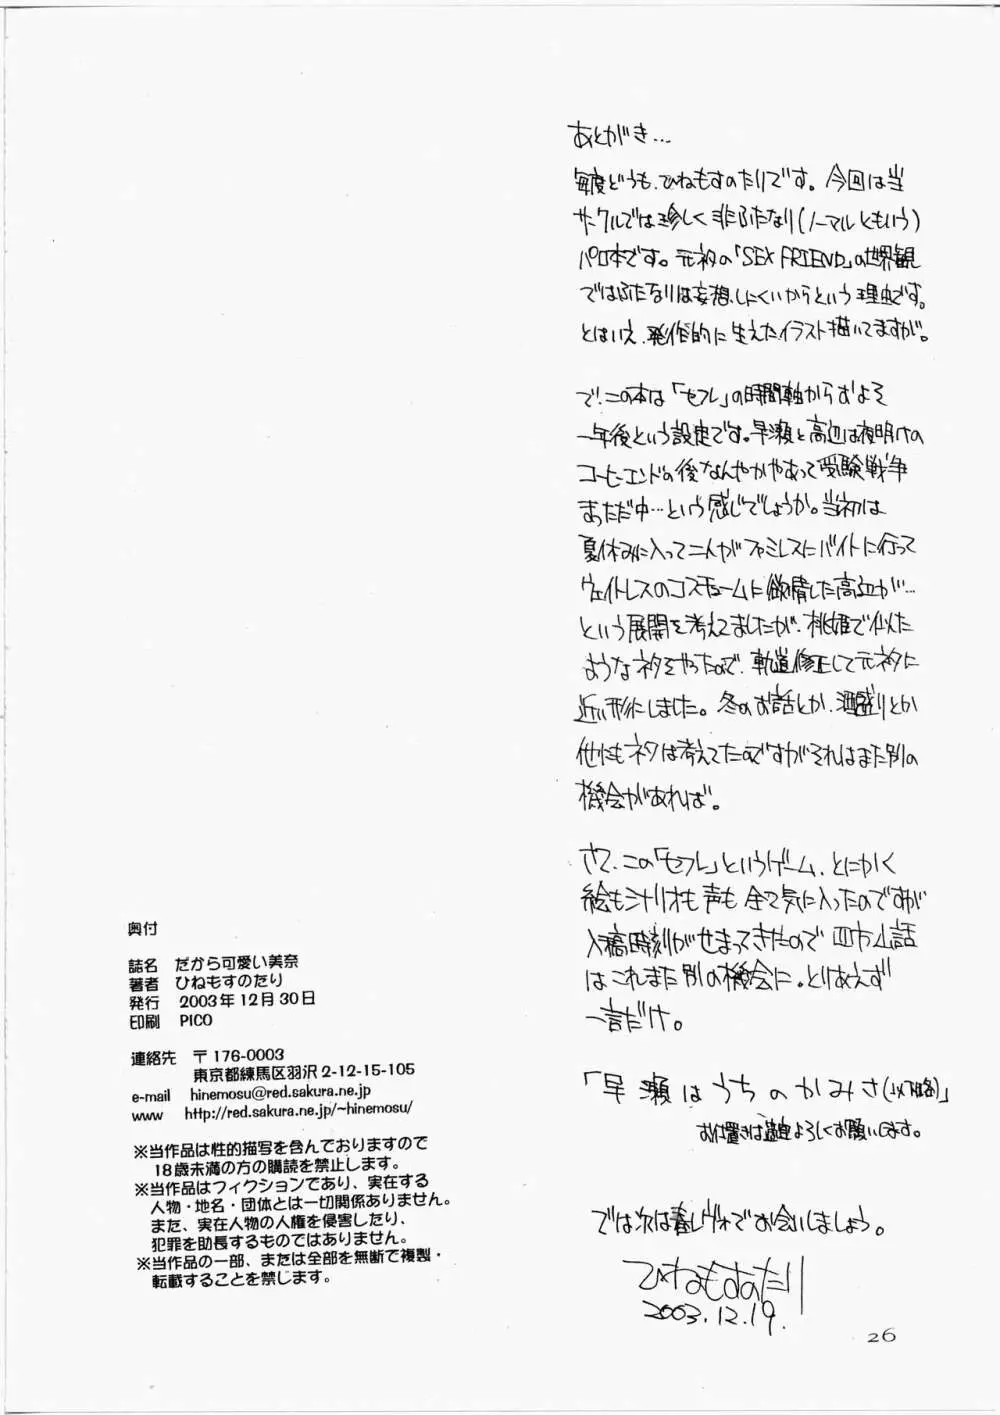 あとがき…
毎度どうも、ひねもすのたりです。今回は当
サークルでは珍しく非ふたなり(ノーマルともいう)
パロ本です。元ネタの「SEX FRIEND」の世界観
ではふたなりは妄想しにくいからという理由です。
とはいえ、発作的に生えたイラスト描いてますが。
で、この本は「セフレ」の時間軸からおよそ
一年後という設定です。早瀬と高辺は夜明けの
コーヒーエンドの後なんやかやあって受験戦争
まっただ中…という感じでしょうか。当初は
夏休みに入って二人がファミレスにバイトに行って
ウェイトレスのコスチュームに欲情した高辺が…
という展開を考えてましたが、桃姫で似た
ようなネタをやったので、軌道修正して元ネタに
近い形にしました。冬のお話とか、酒盛りとか
他にもネタは考えてたのですがそれはまた別の
機会があれば。
さて、この「セフレ」というゲーム、とにかく
絵もシナリオも声も全て気に入ったのですが
入稿時刻がせまってきたので四方山話
はこれまた別の機会に。とりあえず
一言だけ。
「早瀬はうちのかみさ(以下略)」
お仕置きは適度よろしくお願いします。
では次は春レヴォでお会いしましょう。
ひねもすのたり
2003.12.19.
26
奥付
誌名 だから可愛い美奈
著者 ひねもすのたり
発行 2003年12月30日
印刷 PICO
連絡先 〒176-0003
東京都練馬区羽沢2-12-15-105
e-mail hinemosu@red.sakura.ne.jp
www http://red.sakura.ne.jp/~hinemosu/
※当作品は性的描写を含んでおりますので
18歳未満の方の購読を禁止します。
※当作品はフィクションであり、実在する
人物・地名・団体とは一切関係ありません。
また、実在人物の人権を侵害したり、
犯罪を助長するものではありません。
※当作品の一部、または全部を無断で複製・
転載することを禁じます。